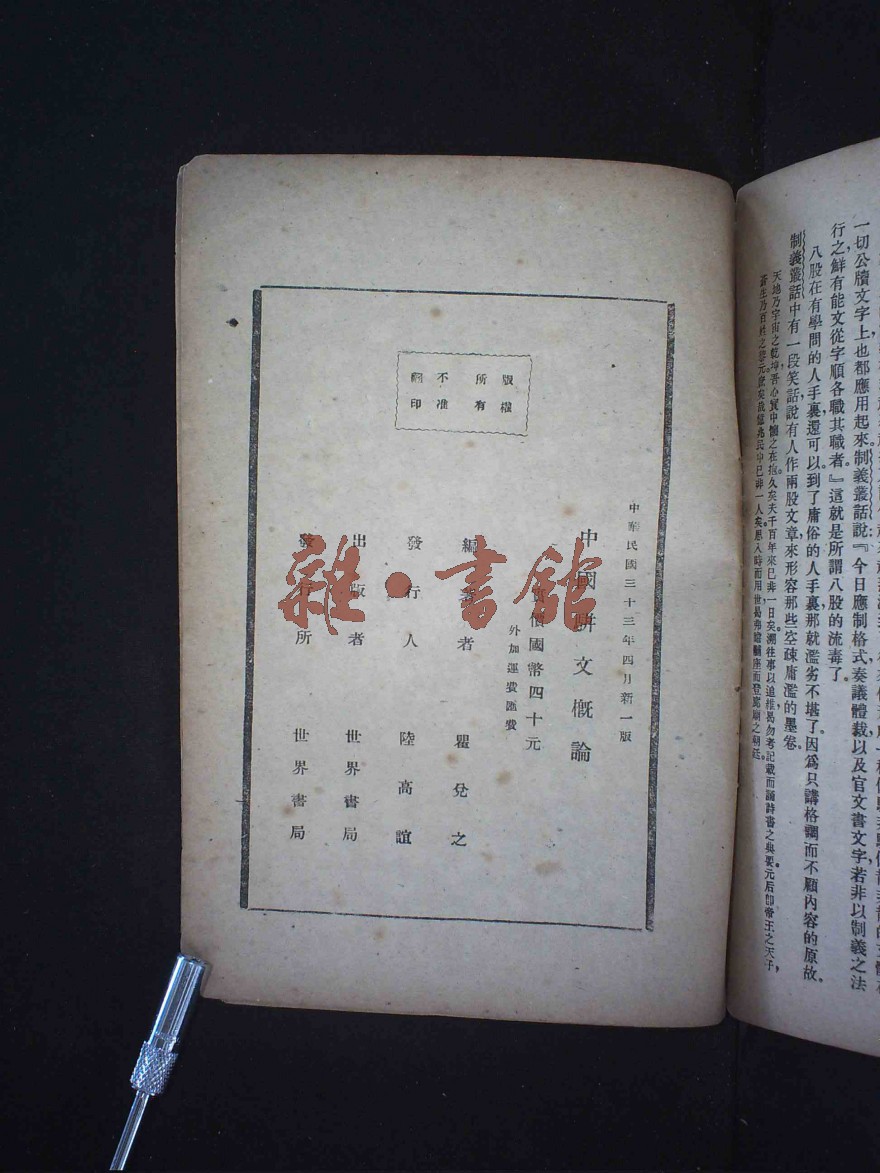 一切公牘文字上也都應用起來制義叢話說『今日應制格式奏議體裁以及官文書文字若非以制義之法
行之鮮有能文從字順各職其職者。』這就是所謂八股的流毒了。
八股在有學問的人手裏還可以到了庸俗的人手裏那就濫劣不堪了因爲只講格調而不顧內容的原故。
制義叢話中有一段笑話說有人作兩股文章來形容那些空疎庸濫的墨卷。
天地乃宇宙之乾坤吾心實中懷之在抱久矣夫千百年來已非一日矣溯往事以追維曷勿考記載而誦詩書之典要元后即帝王之天子,
蒼生乃百姓之黎元庶矣哉億兆民中已非一人矣思入時而用世曷弗瞻黼座而登廊廟之朝廷。
版權
所有
不准
翻印
中華民國三十三年四月新一版
中國駢文概論
實價國幣四十元
外加運費匯費
編著者 瞿兌之
發行人 陸高誼
出版者 世界書局
發行所 世界書局
雜·書館